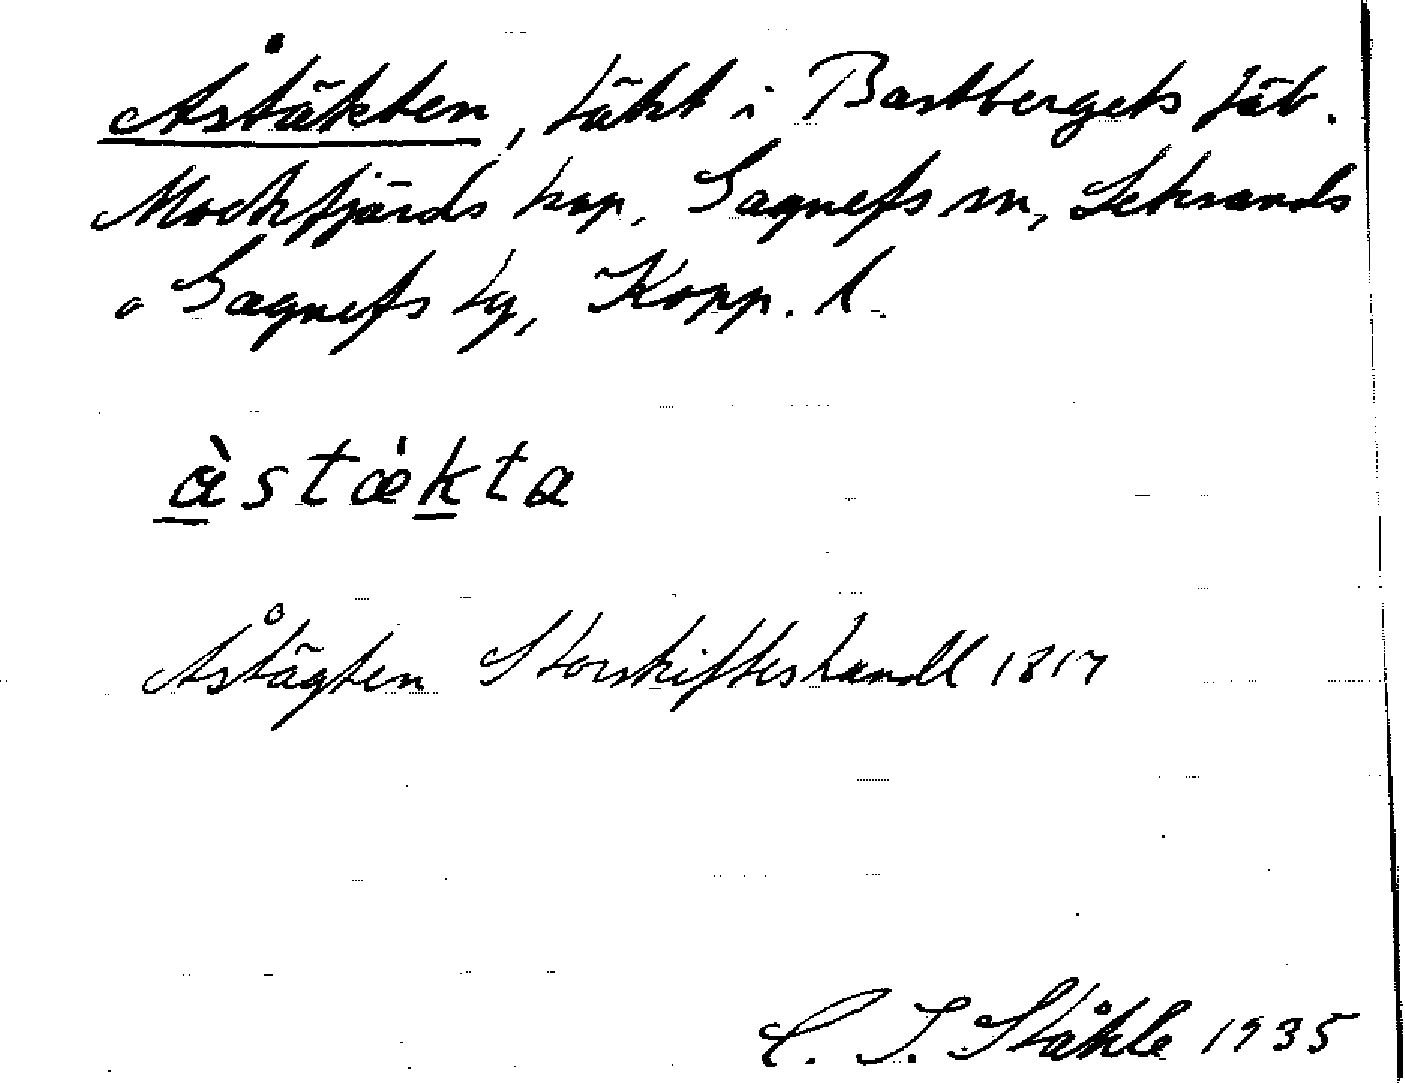 Åstäkten, täkt i Bastbergets fäb.
Mockfjärds kap, Gagnefs sn, Leksands
o Gagnefs tg, Kopp. l.
àstækta
Åstägten Storskifteshandl 1817
C. I. Ståhle 1935